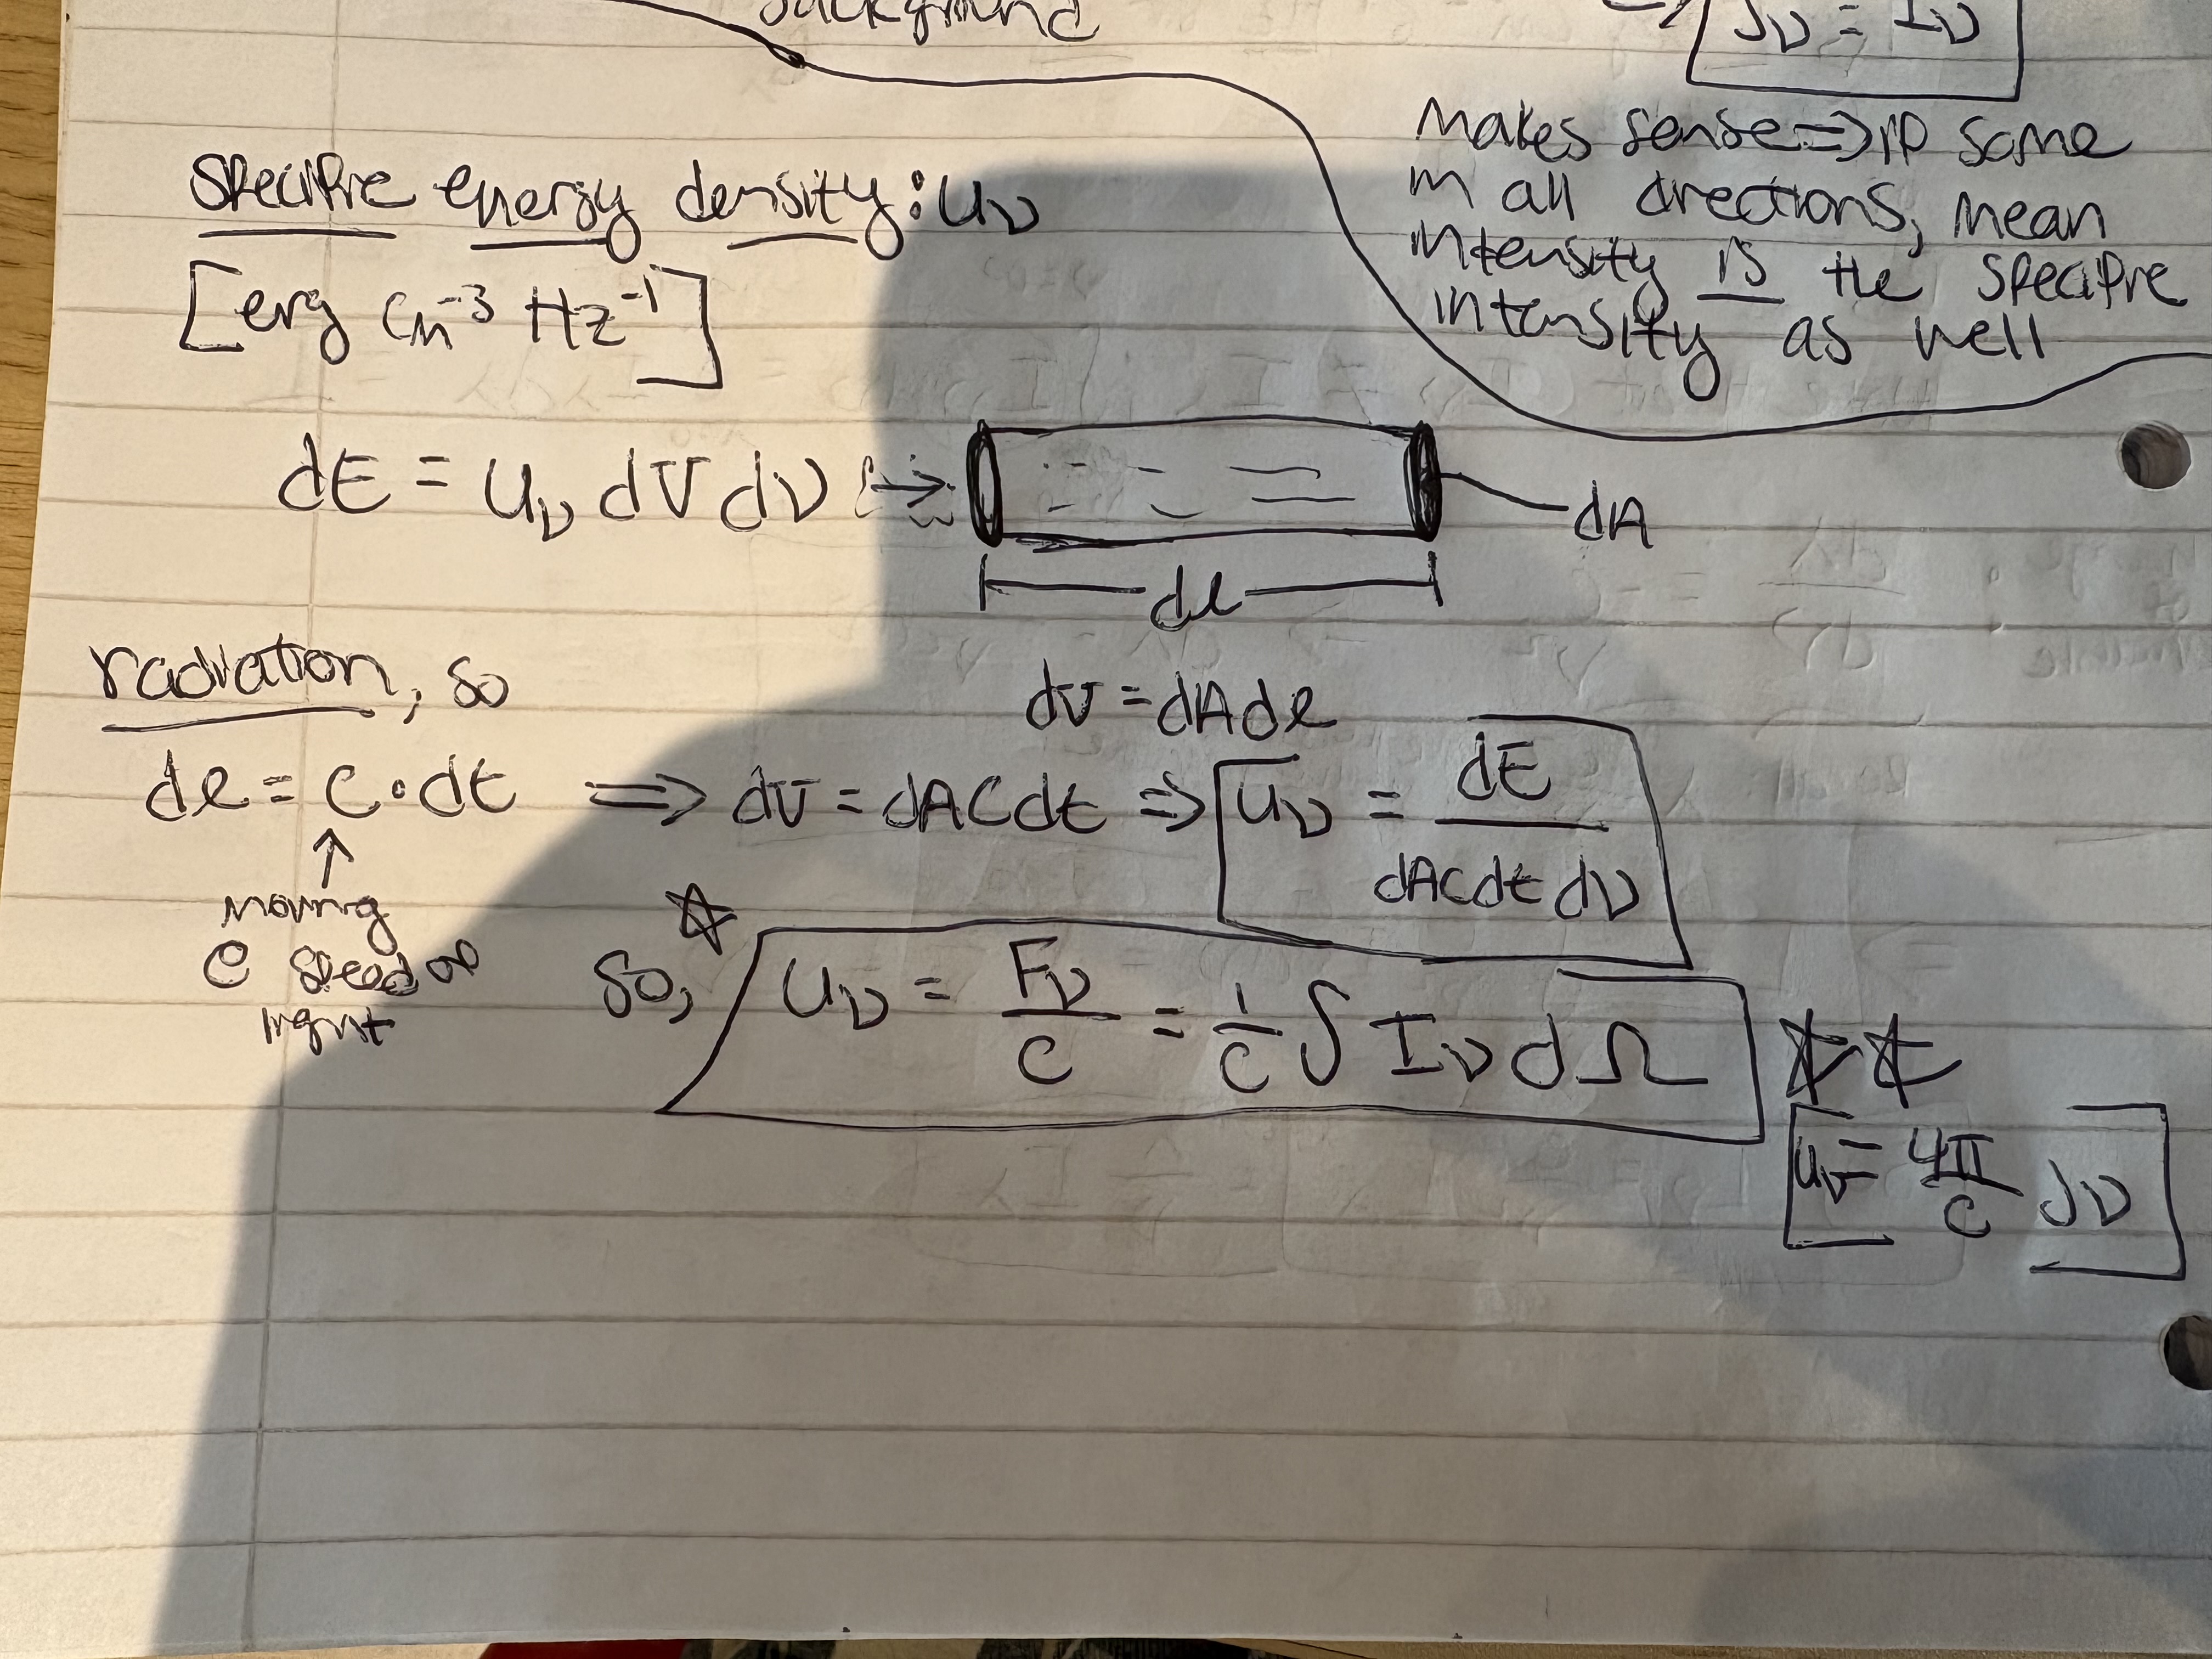 background
⇒ Jν = Iν
makes sense ⇒ if same
in all directions, mean
intensity is the specific
intensity as well
specific energy density: uν
[erg cm⁻³ Hz⁻¹]
dE = uν dV dν
dA
dl
radiation, so
dV = dA dl
dl = c · dt ⇒ dV = dA c dt ⇒ uν = dE / (dA c dt dν)
↑
moving
@ speed of
light
so, ☆ uν = Fν / c = 1/c ∫ Iν dΩ
☆☆
uν = 4π/c Jν